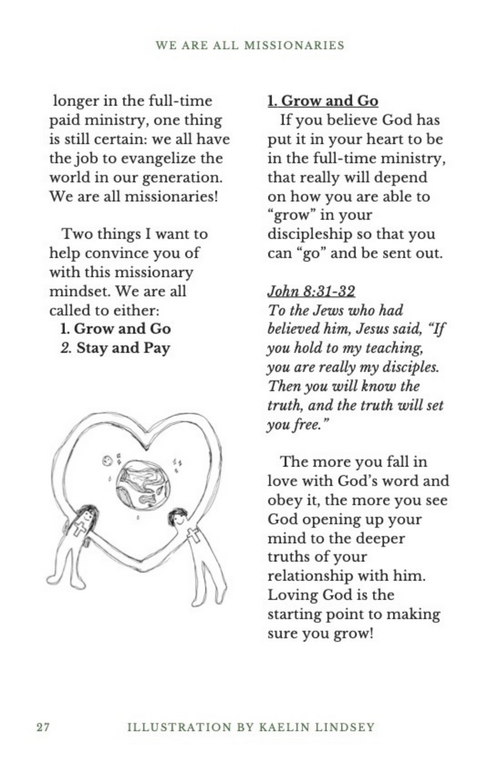 WE ARE ALL MISSIONARIES
longer in the full-time
paid ministry, one thing
is still certain: we all have
the job to evangelize the
world in our generation.
We are all missionaries!
Two things I want to
help convince you of
with this missionary
mindset. We are all
called to either:
1. Grow and Go
2. Stay and Pay
1. Grow and Go
If you believe God has
put it in your heart to be
in the full-time ministry,
that really will depend
on how you are able to
“grow” in your
discipleship so that you
can “go” and be sent out.
John 8:31-32
To the Jews who had
believed him, Jesus said, “If
you hold to my teaching,
you are really my disciples.
Then you will know the
truth, and the truth will set
you free.”
The more you fall in
love with God’s word and
obey it, the more you see
God opening up your
mind to the deeper
truths of your
relationship with him.
Loving God is the
starting point to making
sure you grow!
27
ILLUSTRATION BY KAELIN LINDSEY